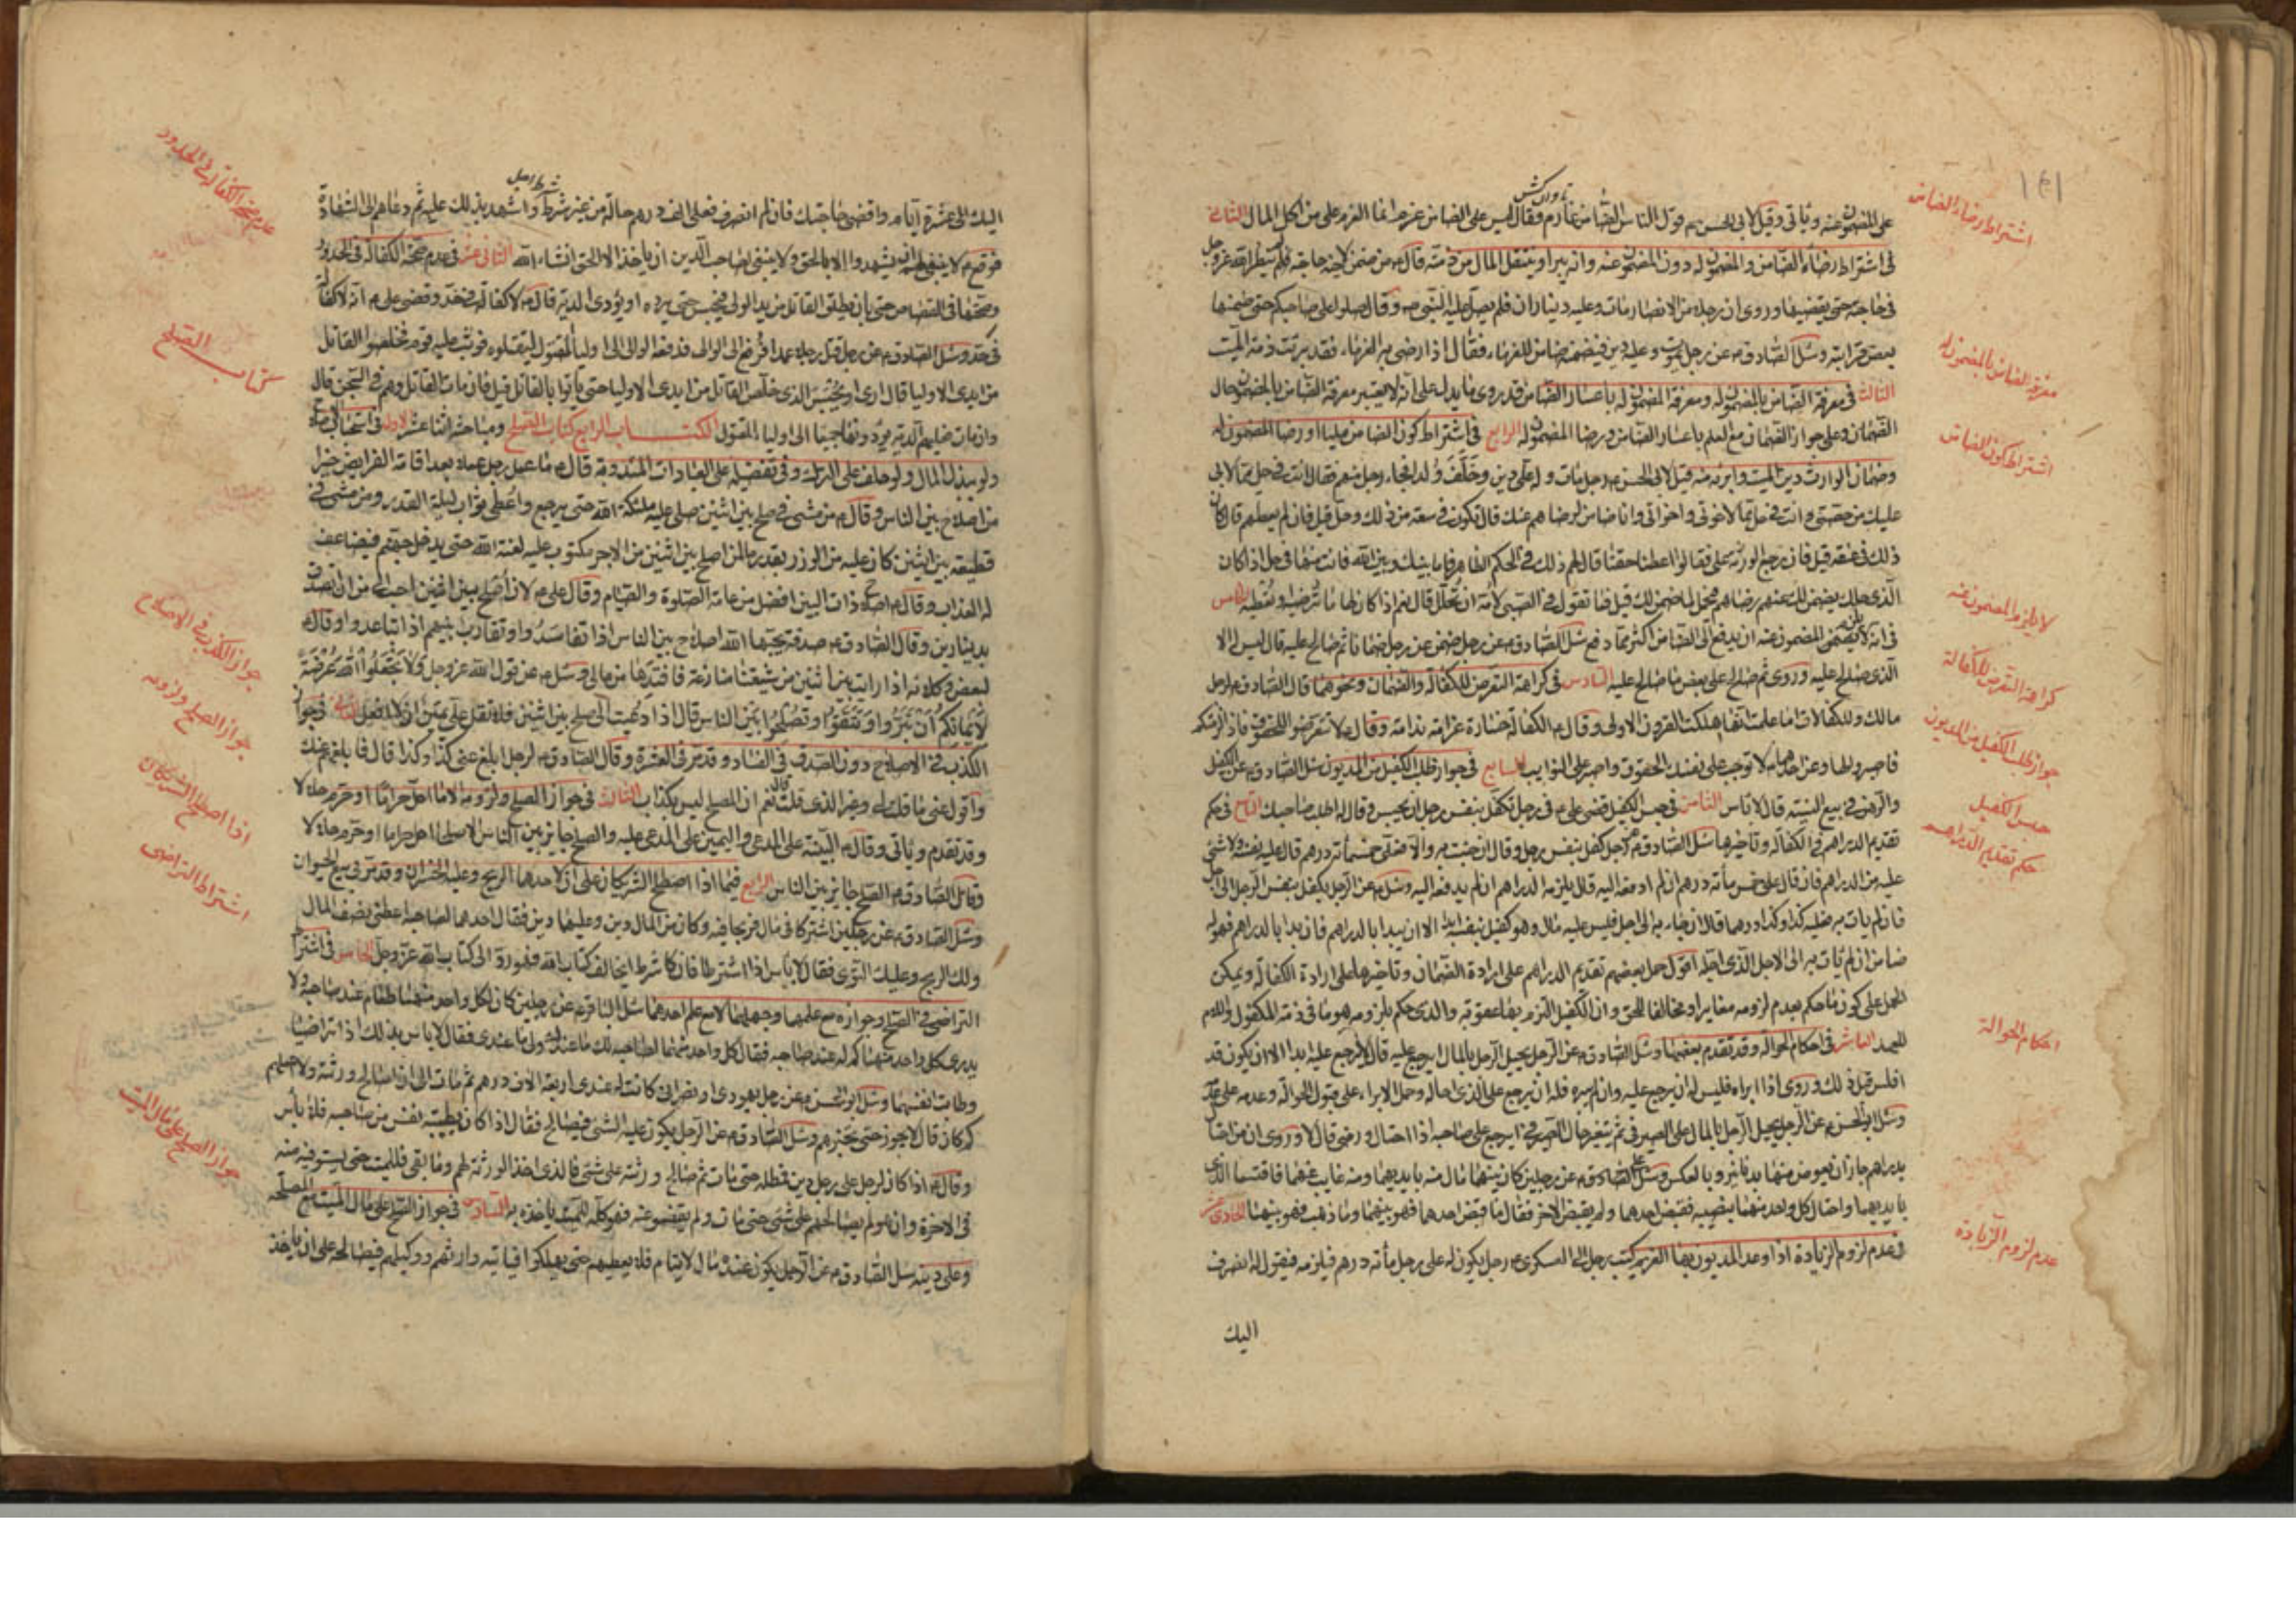 ١٤١
على المضمون عنه وياتى وقيل لابى الحسن ع قول الناس الضامن غارم فقال ليس على الضامن غرم انما الغرم على من اكل المال الثانى
فى اشتراط رضاء الضامن والمضمون له دون المضمون عنه وانه يبرا وينتقل المال من ذمته قال ع من ضمن لاخيه حاجة فلم ينظر الله عز وجل
فى حاجته حتى يقضيها وروى ان رجلا من الانصار مات وعليه ديناران فلم يصل عليه النبى ص وقال صلوا على صاحبكم حتى ضمنها
بعض قرابته وسئل الصادق ع عن رجل يموت وعليه دين فيضمنه ضامن للغرماء فقال اذا رضى به الغرماء فقد برئت ذمة الميت
الثالث فى معرفة الضامن بالمضمون له ومعرفة المضمون له باعسار الضامن قد روى ما يدل على انه لا يعتبر معرفة الضامن بالمضمون حال
الضمان وعلى جواز الضمان مع العلم باعسار الضامن ورضا المضمون له الرابع فى اشتراط كون الضامن مليا او رضا المضمون له
وضمان الوارث دين الميت وابرئه منه قيل لابى الحسن ع رجل مات وله على دين وخلف ولدا فجاء رجل منهم فقال انت فى حل مما لابى
عليك من حصتى وانت فى حل مما لاخوتى واخواتى وانا ضامن لرضاهم عنك قال تكون فى سعة من ذلك وحل قيل فان لم يعطهم قال كان
ذلك فى عنقه قيل فان رجع الورثة على فقالوا اعطنا حقنا قال لهم ذلك فى الحكم الظاهر فاما بينك وبين الله فانت منها فى حل اذا كان
الذى حللك يضمن لك عنهم رضاهم فيحمل لما ضمن لك قيل فما تقول فى الصبى لامه ان تحلل قال نعم اذا كان لها ما ترضيه او تعطيه الخامس
فى انه لا يلزم المضمون عنه ان يدفع الى الضامن اكثر مما دفع سئل الصادق ع عن رجل ضمن عن رجل ضمانا ثم صالح عليه قال ليس له الا
الذى صالح عليه وروى ثم صالح على بعض ما صالح عليه السادس فى كراهة التعرض للكفالة والضمان ونحوهما قال الصادق ع لرجل
مالك وللكفالات اما علمت انها اهلكت القرون الاولى وقال ع الكفالة خسارة غرامة ندامة وقال ع لا تتعرضوا للحقوق فاذا لزمتكم
فاصبروا لها وعن احدهما ع لا توجب على نفسك الحقوق واصبر على النوايب السابع فى جواز طلب الكفيل من المديون سئل الصادق ع عن الكفيل
والرهن فى بيع النسية قال لا باس الثامن فى حبس الكفيل قضى على ع فى رجل تكفل بنفس رجل ان يحبس وقال له اطلب صاحبك التاسع فى حكم
تقديم الدراهم فى الكفالة وتاخيرها سئل الصادق ع رجل كفل بنفس رجل وقال ان جئت به والا فعلى خمسمائة درهم قال عليه نفسه ولا شئ
عليه من الدراهم فان قال على خمسمائة درهم ان لم ادفعه اليه قال يلزمه الدراهم ان لم يدفعه اليه وسئل ع عن الرجل يكفل بنفس الرجل الى اجل
فان لم يات به فعليه كذا وكذا درهما قال ان جاء به الى اجل فليس عليه مال وهو كفيل بنفسه ابدا الا ان يبدا بالدراهم فان بدا بالدراهم فهو له
ضامن ان لم يات به الى الاجل الذى اجله اقول حمل بعضهم تقديم الدراهم على ارادة الضمان وتاخيرها على ارادة الكفالة ويمكن
الحمل على كون ما حكم بعدم لزومه مغايرا ومخالفا للحق وان الكفيل التزم بها عقوبة والذى حكم بلزومه هو ما فى ذمة المكفول واللام
للعهد العاشر فى احكام الحوالة وقد تقدم بعضها وسئل الصادق ع عن الرجل يحيل الرجل بالمال ايرجع عليه قال لا يرجع عليه ابدا الا ان يكون قد
افلس قبل ذلك وروى اذا ابراه فليس له ان يرجع عليه وان لم يبره فله ان يرجع على الذى احاله وحمل الابراء على قبول الحوالة وعدمه على عدمه
وسئل ابو الحسن ع عن الرجل يحيل الرجل بالمال على الصيرفى ثم يتغير حال الصيرفى ايرجع على صاحبه اذا احتال ورضى قال لا وروى ان من احتال
بدراهم جاز ان يعوض منها بدنانير وبالعكس وسئل الصادق ع عن رجلين كان بينهما مال منه بايديهما ومنه غايب عنهما فاقتسما الذى
بايديهما واحتال كل واحد منهما بنصيبه فقبض احدهما ولم يقبض الاخر فقال ما قبض احدهما فهو بينهما وما ذهب فهو بينهما الحادى عشر
فى عدم لزوم الزيادة اذا وعد المديون بها الغريم كتب رجل الى العسكرى ع رجل يكون له على رجل مائة درهم فيلزمه فيقول له انصرف
اليك
اشتراط رضاء الضامن
معرفة الضامن بالمضمون له
اشتراط كون الضامن
لا يلزم المضمون عنه
كراهة التعرض للكفالة
جواز طلب الكفيل من المديون
حبس الكفيل
حكم تقديم الدراهم
احكام الحوالة
عدم لزوم الزيادة
شرط اصل
اليك الى عشرة ايام واقضى حاجتك فان لم انصرف فعلى الف درهم حالة من غير شرط واشهد بذلك عليه ثم دعاهم الى الشهادة
فوقع ع لا ينبغى لهم ان يشهدوا الا بالحق ولا ينبغى لصاحب الدين ان ياخذ الا الحق انشاء الله الثانى عشر فى عدم صحة الكفالة فى الحدود
وصحتها فى القصاص حتى بان يطلق القاتل من يد الولى فيحبس حتى يرده او يؤدى الدية قال ص لا كفالة فى حد وقضى على ع انه لا كفالة
فى حد وسئل الصادق ع عن رجل قتل رجلا عمدا فرفع الى الوالى فدفعه الوالى الى اولياء المقتول ليقتلوه فوثب عليه قوم فخلصوا القاتل
من ايدى الاوليا قال ارى ان يحبس الذى خلص القاتل من ايدى الاوليا حتى ياتوا بالقاتل قيل فان مات القاتل وهم فى السجن قال
وان مات فعليهم الدية يؤدونها جميعا الى اوليا المقتول الكتاب الرابع كتاب الصلح ومباحثه اثنا عشر الاول فى استحبابه
ولو ببذل المال ولو حلف على الترك وفى تفضيله على العبادات المندوبة قال ع ما عمل رجل عملا بعد اقامة الفرايض خيرا
من اصلاح بين الناس وقال ع من مشى فى صلح بين اثنين صلى عليه ملئكة الله حتى يرجع واعطى ثواب ليلة القدر ومن مشى فى
قطيعة بين اثنين كان عليه من الوزر بقدر ما لمن اصلح بين اثنين من الاجر مكتوب عليه لعنة الله حتى يدخل جهنم فيضاعف
له العذاب وقال ع اصلاح ذات البين افضل من عامة الصلوة والصيام وقال على ع لان اصلح بين اثنين احب الى من ان اتصدق
بدينارين وقال الصادق ع صدقة يحبها الله اصلاح بين الناس اذا تفاسدوا وتقارب بينهم اذا تباعدوا وقال ع
لبعض وكلائه اذا رايت بين اثنين من شيعتنا منازعة فافتدها من مالى وسئل ع عن قول الله عز وجل ولا تجعلوا الله عرضة
لايمانكم ان تبروا وتتقوا وتصلحوا بين الناس قال اذا دعيت الى صلح بين اثنين فلا تقل على يمين ان لا افعل الثانى فى جواز
الكذب فى الاصلاح دون الصدق فى الفساد وقد مر فى العشرة وقال الصادق ع لرجل ابلغ عنى كذا وكذا قال فابلغهم عنك
واقول عنى ما قلت لى وغير الذى قلت قال نعم ان المصلح ليس بكذاب الثالث فى جواز الصلح ولزومه الا ما احل حراما او حرم حلالا
وقد تقدم وياتى وقال ص البينة على المدعى واليمين على المدعى عليه والصلح جايز بين الناس الا صلحا احل حراما او حرم حلالا
وقال الصادق ع الصلح جايز بين الناس الرابع فيما اذا اصطلح الشريكان على ان لاحدهما الربح وعليه الخسران وقد مر فى بيع الحيوان
وسئل الصادق ع عن رجلين اشتركا فى مال فربحا فيه وكان من المال دين وعليهما دين فقال احدهما لصاحبه اعطنى نصف المال
ولك الربح وعليك التوى فقال لا باس اذا اشترطا فان كان شرط يخالف كتاب الله فهو رد الى كتاب الله عز وجل الخامس فى اشتراط
التراضى فى الصلح وجوازه مع علمهما وجهلهما لا مع علم احدهما سئل الباقر ع عن رجلين كان لكل واحد منهما طعام عند صاحبه لا
يدرى كل واحد منهما كم له عند صاحبه فقال كل واحد منهما لصاحبه لك ما عندك ولى ما عندى فقال لا باس بذلك اذا تراضيا
وطابت انفسهما وسئل ابو الحسن ع عن رجل يهودى او نصرانى كانت له عندى اربعة الاف درهم ثم مات الى ان اصالح ورثته ولا اعلمهم
كم كان قال لا يجوز حتى يخبرهم وسئل الصادق ع عن الرجل يكون عليه الشئ فيصالح فقال اذا كان بطيبة نفس من صاحبه فلا باس
وقال ع اذا كان لرجل على رجل دين فمطله حتى مات ثم صالح ورثته على شئ فالذى اخذ الورثة لهم وما بقى فللميت حتى يستوفيه منه
فى الاخرة وان هو لم يصالحهم على شئ حتى مات ولم يقض عنه فهو كله للميت ياخذه به السادس فى جواز الصلح على مال الميت مع المصلحة
وعلى دينه سئل الصادق ع عن الرجل يكون عنده مال لايتام فلا يعطيهم حتى يهلكوا فياتيه وارثهم ووكيلهم فيصالحه على ان ياخذ
كتاب الصلح
جواز الكذب فى الاصلاح
جواز الصلح ولزومه
اذا اصطلح الشريكان
اشتراط التراضى
جواز الصلح على مال الميت